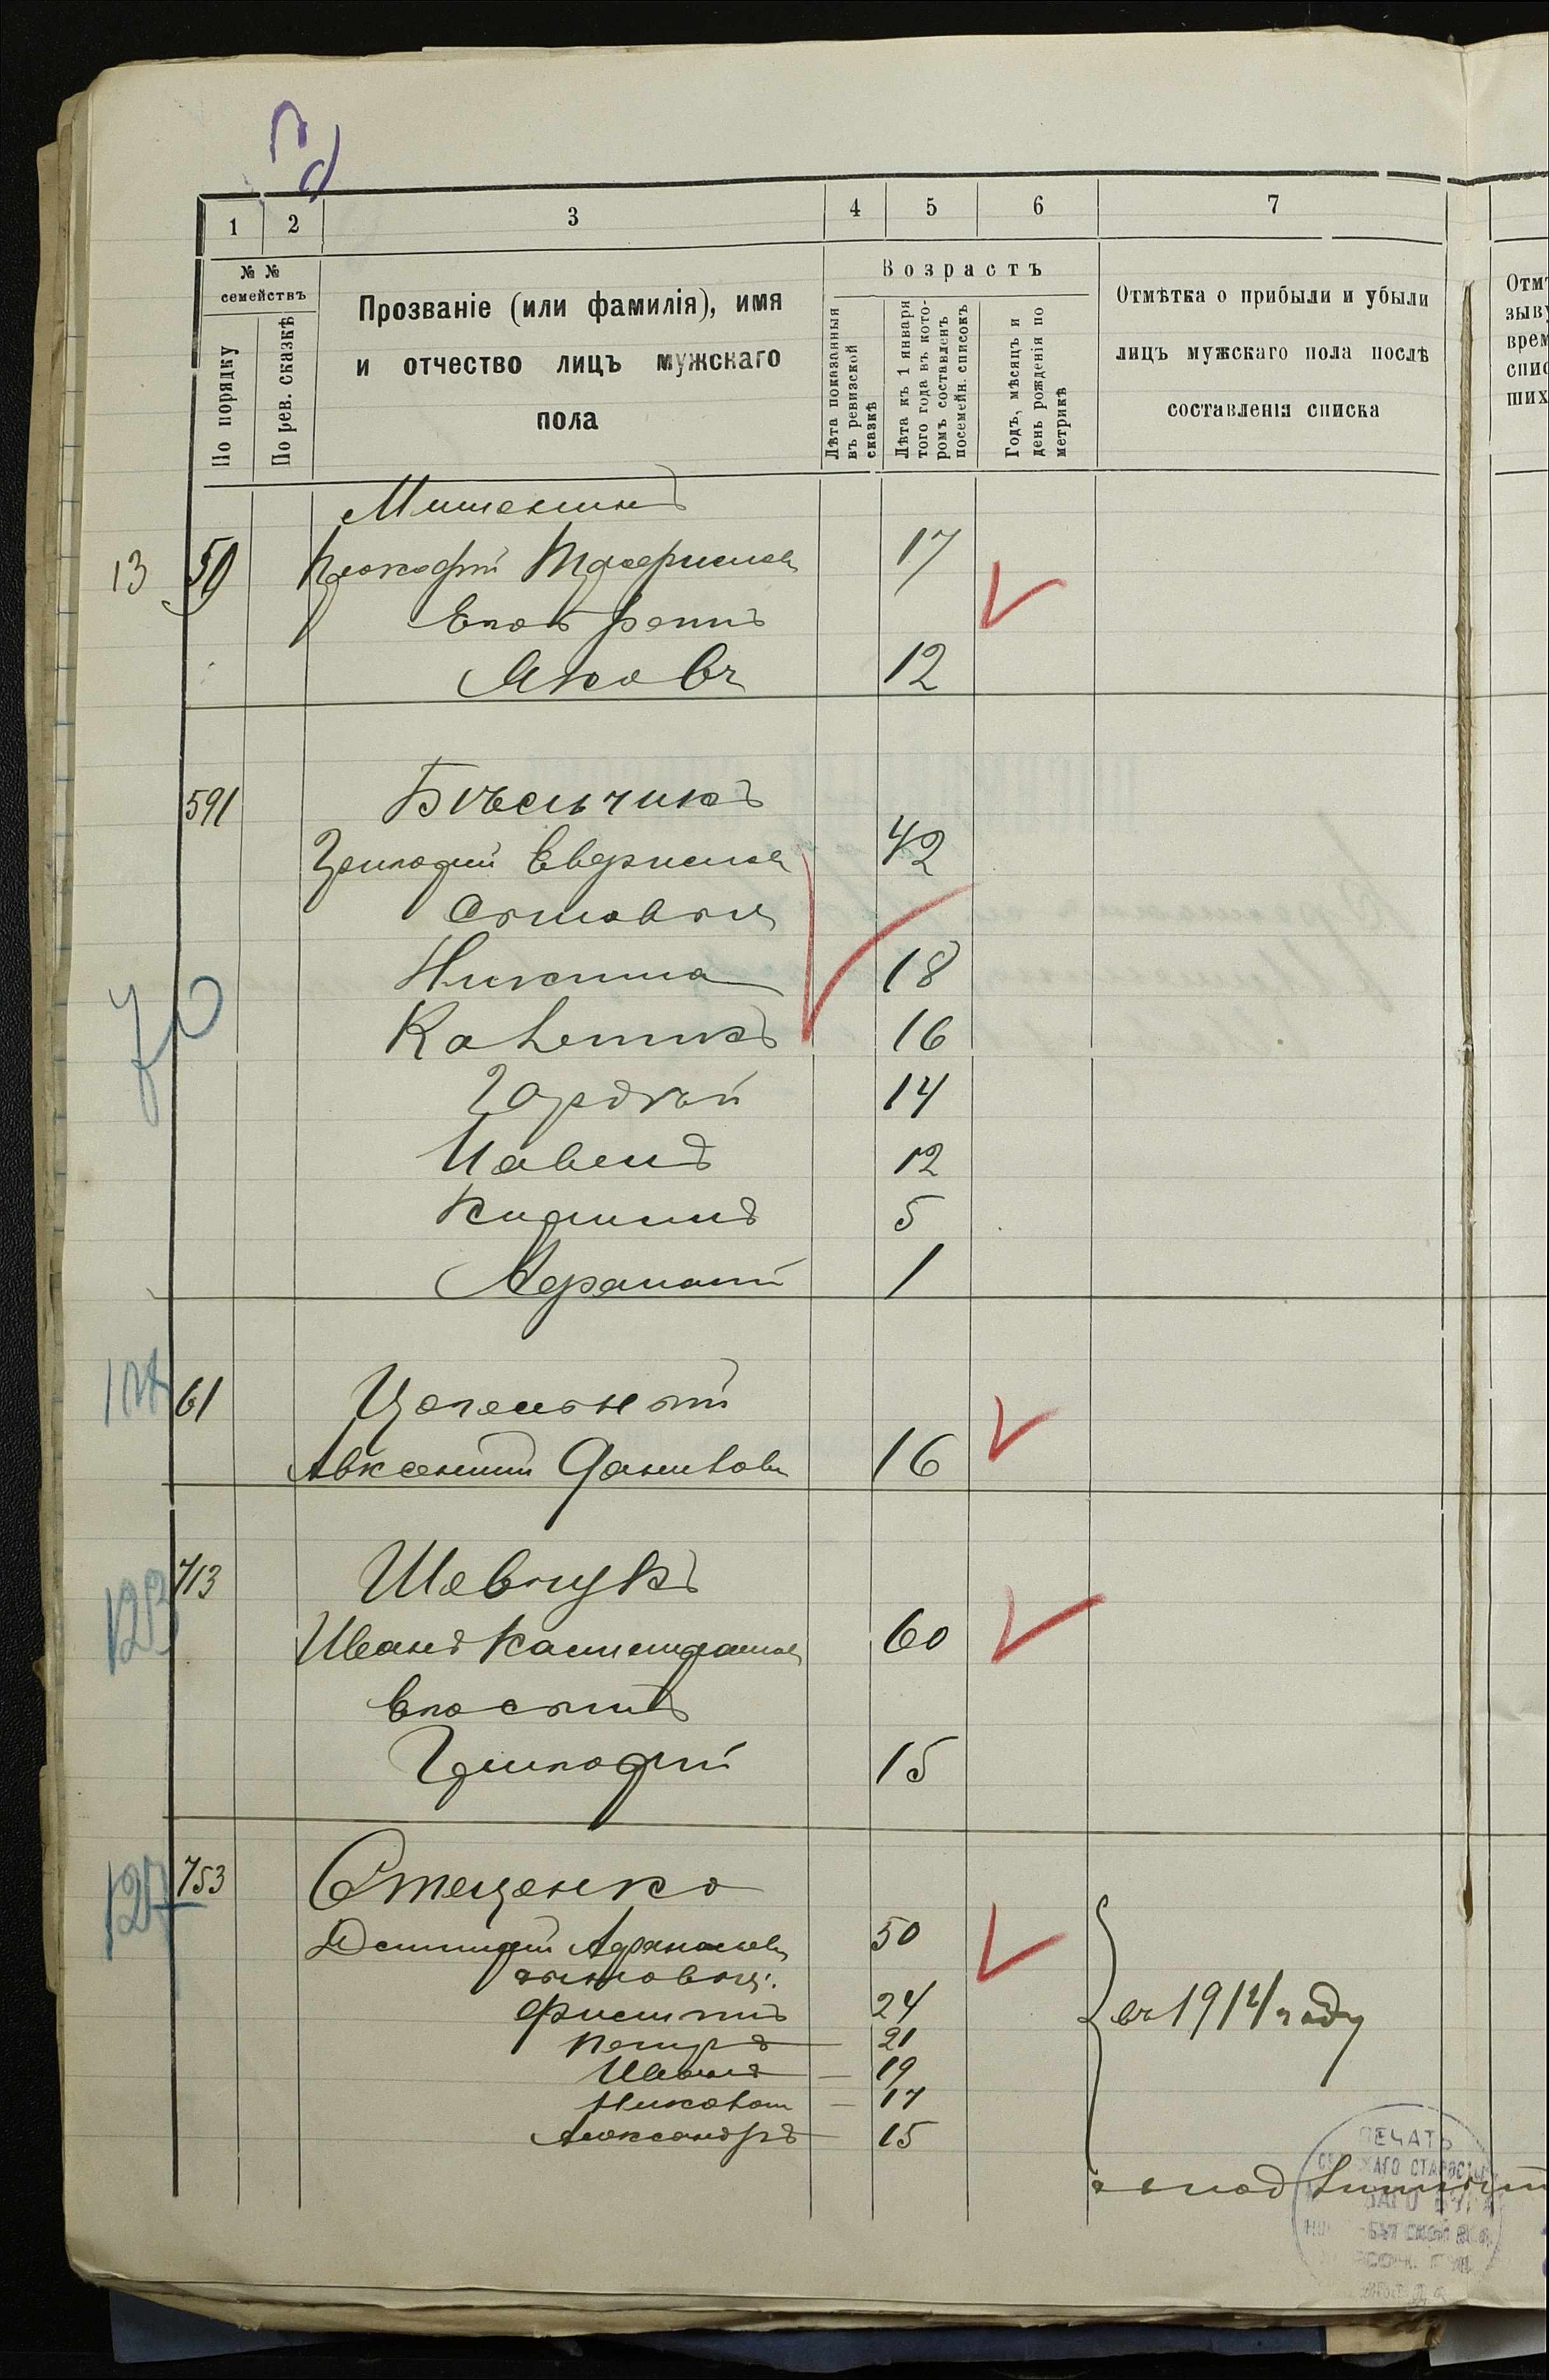 1 2 3 4 5 6 7
№ № семействъ
По порядку
По рев. сказкѣ
Прозваніе (или фамилія), имя
и отчество лицъ мужскаго
пола
Возрастъ
Лѣта показанныя
въ ревизской
сказкѣ
Лѣта къ 1 января
того года въ кото-
ромъ составленъ
посемейн. списокъ
Годъ, мѣсяцъ и
день рожденія по
метрикѣ
Отмѣтка о прибыли и убыли
лицъ мужскаго пола послѣ
составленія списка
13 50
Прокофій 17
Его братъ
Яковъ 12
591 Бѣльчикъ
Григорій 42
Сыновья
Никита 18
Каленикъ 16
Гордѣй 14
Павелъ 12
Кирилъ 5
Афанасій 1
70
61
Авксентій Данилов 16
713 Шевчукъ
Иванъ 60
Его сынъ
Григорій 15
127 753 Стеценко
Дмитрій Афанасьев 50
сыновья:
24
Петръ 21
Иванъ 19
Николай 17
Александръ 15
въ 1914 году
ПЕЧАТЬ